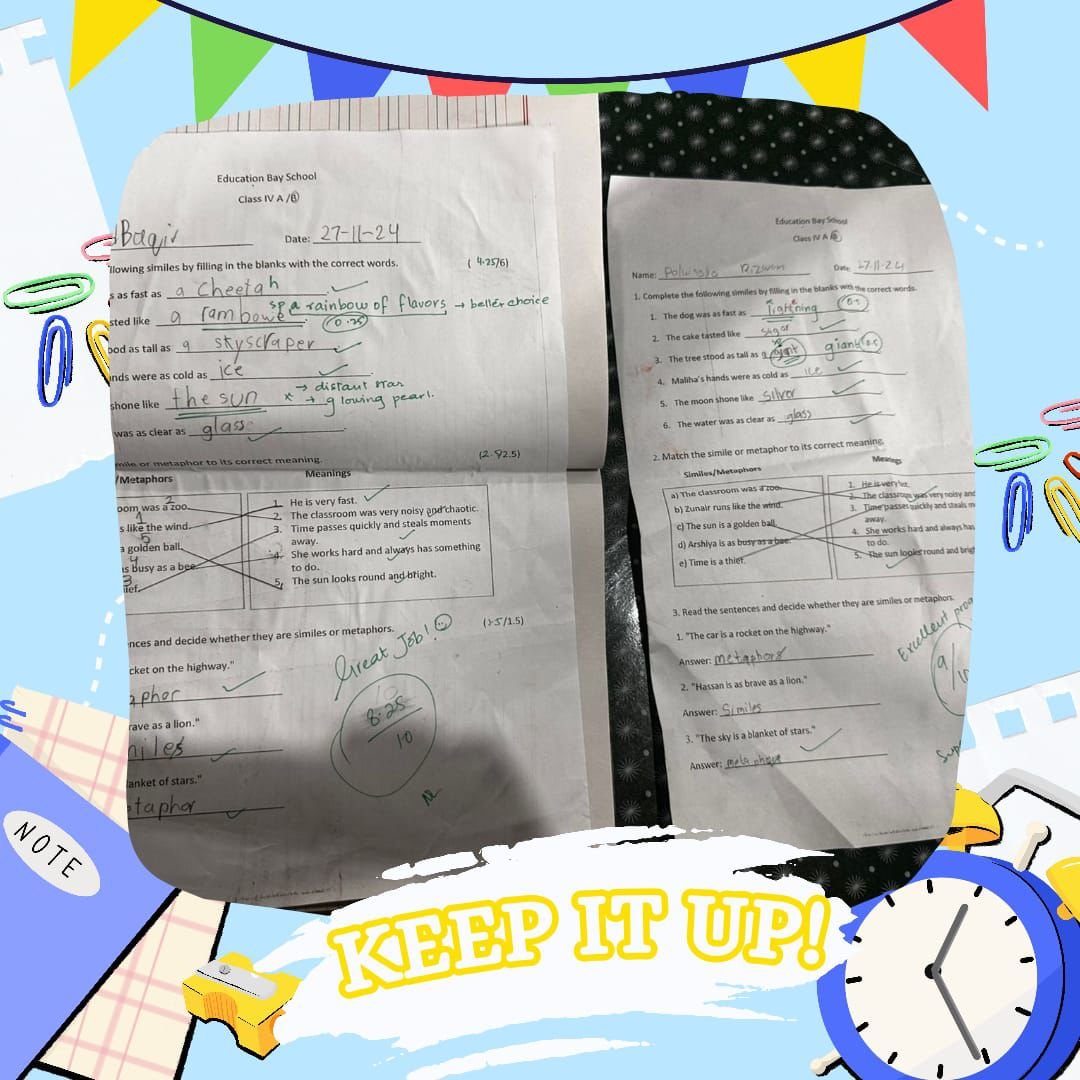 Education Bay School
Class IV A /B
Baqir Date: 27-11-24
llowing similes by filling in the blanks with the correct words. ( 4.25/6)
s as fast as a Cheetah
sp a rainbow of flavors → better choice
sted like a rambowe. 0.25
ood as tall as a skyscraper
nds were as cold as ice
→ distant star
shone like the sun x → glowing pearl.
was as clear as glass
mile or metaphor to its correct meaning. (2.5/2.5)
/Metaphors Meanings
oom was a zoo. 2
s like the wind. 1
a golden ball. 5
as busy as a bee. 4
ief. 3
1. He is very fast.
2. The classroom was very noisy and chaotic.
3. Time passes quickly and steals moments
away.
4. She works hard and always has something
to do.
5. The sun looks round and bright.
nces and decide whether they are similes or metaphors. (1.5/1.5)
cket on the highway."
aphor
rave as a lion."
miles
lanket of stars."
taphor
Great Job!
8.25
10
Education Bay School
Class IV A B
Name: Rizwan Date 27-11-24
1. Complete the following similes by filling in the blanks with the correct words.
1. The dog was as fast as lightening
2. The cake tasted like sugar
3. The tree stood as tall as a giant
4. Maliha's hands were as cold as ice
5. The moon shone like silver
6. The water was as clear as glass
2. Match the simile or metaphor to its correct meaning.
Similes/Metaphors Meanings
a) The classroom was a zoo.
b) Zunair runs like the wind.
c) The sun is a golden ball.
d) Arshiya is as busy as a bee.
e) Time is a thief.
1. He is very fast.
2. The classroom was very noisy and
3. Time passes quickly and steals m
away.
4. She works hard and always has
to do.
5. The sun looks round and brigh
3. Read the sentences and decide whether they are similes or metaphors.
1. "The car is a rocket on the highway."
Answer: metaphors
2. "Hassan is as brave as a lion."
Answer: Similes
3. "The sky is a blanket of stars."
Answer:
Excellent
9/10
NOTE
KEEP IT UP!